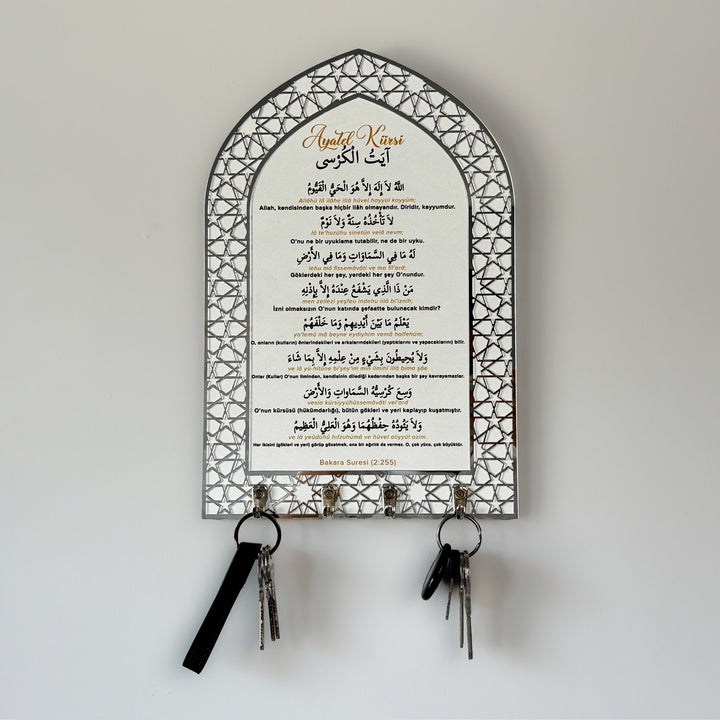 Ayatel Kürsi
آيَتُ الْكُرْسى
اللَّهُ لاَ إِلَهَ إِلاَّ هُوَ الْحَيُّ الْقَيُّومُ
Allâhü lâ ilâhe illâ hüvel hayyül kayyûm;
Allah, kendisinden başka hiçbir ilâh olmayandır. Diridir, kayyumdur.
لاَ تَأْخُذُهُ سِنَةٌ وَلاَ نَوْمٌ
lâ te'huzühu sinetün velâ nevm;
O'nu ne bir uyuklama tutabilir, ne de bir uyku.
لَهُ مَا فِي السَّمَاوَاتِ وَمَا فِي الأَرْضِ
lehu mâ fissemâvâti ve ma fil'ard;
Göklerdeki her şey, yerdeki her şey O'nundur.
مَنْ ذَا الَّذِي يَشْفَعُ عِنْدَهُ إِلاَّ بِإِذْنِهِ
men zellezi yeşfeu indehu illâ bi'iznih;
İzni olmaksızın O'nun katında şefaatte bulunacak kimdir?
يَعْلَمُ مَا بَيْنَ أَيْدِيهِمْ وَمَا خَلْفَهُمْ
ya'lemü mâ beyne eydiyhim vemâ halfehüm;
O, onların (kulların) önlerindekileri ve arkalarındakileri (yaptıklarını ve yapacaklarını) bilir.
وَلاَ يُحِيطُونَ بِشَيْءٍ مِنْ عِلْمِهِ إِلاَّ بِمَا شَاءَ
ve lâ yü hîtûne bi'şey'im min ilmihî illâ bima şâe
Onlar (Kullar) O'nun ilminden, kendisinin dilediği kadarından başka bir şey kavrayamazlar.
وَسِعَ كُرْسِيُّهُ السَّمَاوَاتِ وَالأَرْضَ
vesia kürsiyyühüssemâvâti vel'ard
O'nun kürsüsü (hükümdarlığı), bütün gökleri ve yeri kaplayıp kuşatmıştır.
وَلاَ يَئُودُهُ حِفْظُهُمَا وَهُوَ الْعَلِيُّ الْعَظِيمُ
ve lâ yeûdühü hıfzuhümâ ve hüvel aliyyül azim.
Her ikisini (gökleri ve yeri) görüp gözetmek, ona bir ağırlık da vermez. O, çok yüce, çok büyüktür.
Bakara Suresi (2:255)